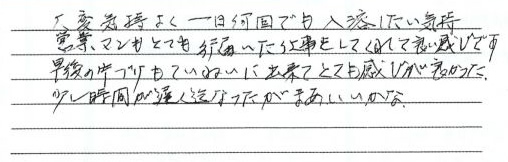 大変気持よく一日何回でも入浴したい気持
営業マンもとても行届いた仕事をしてくれて良い感じです
早後の中づりもていねいに出来てとても感じが良かった
少し時間が遅くなったがまあいいかな。